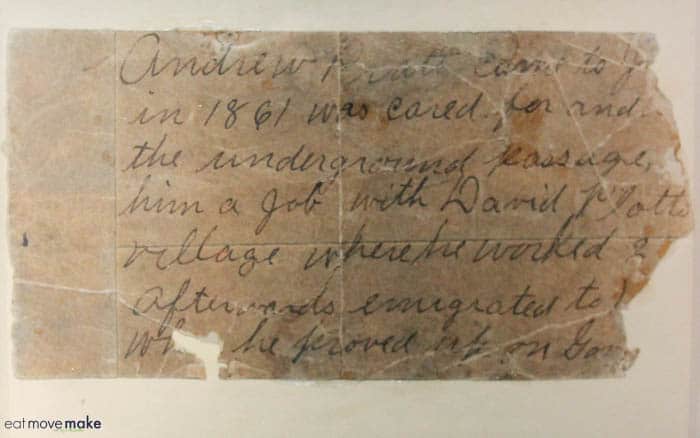 Andrew Pratt came to J
in 1861 was cared for and
the underground passage,
him a job with David Platts
village where he worked 2
Afterwards emigrated to
he proved up on Gov
eatmovemake